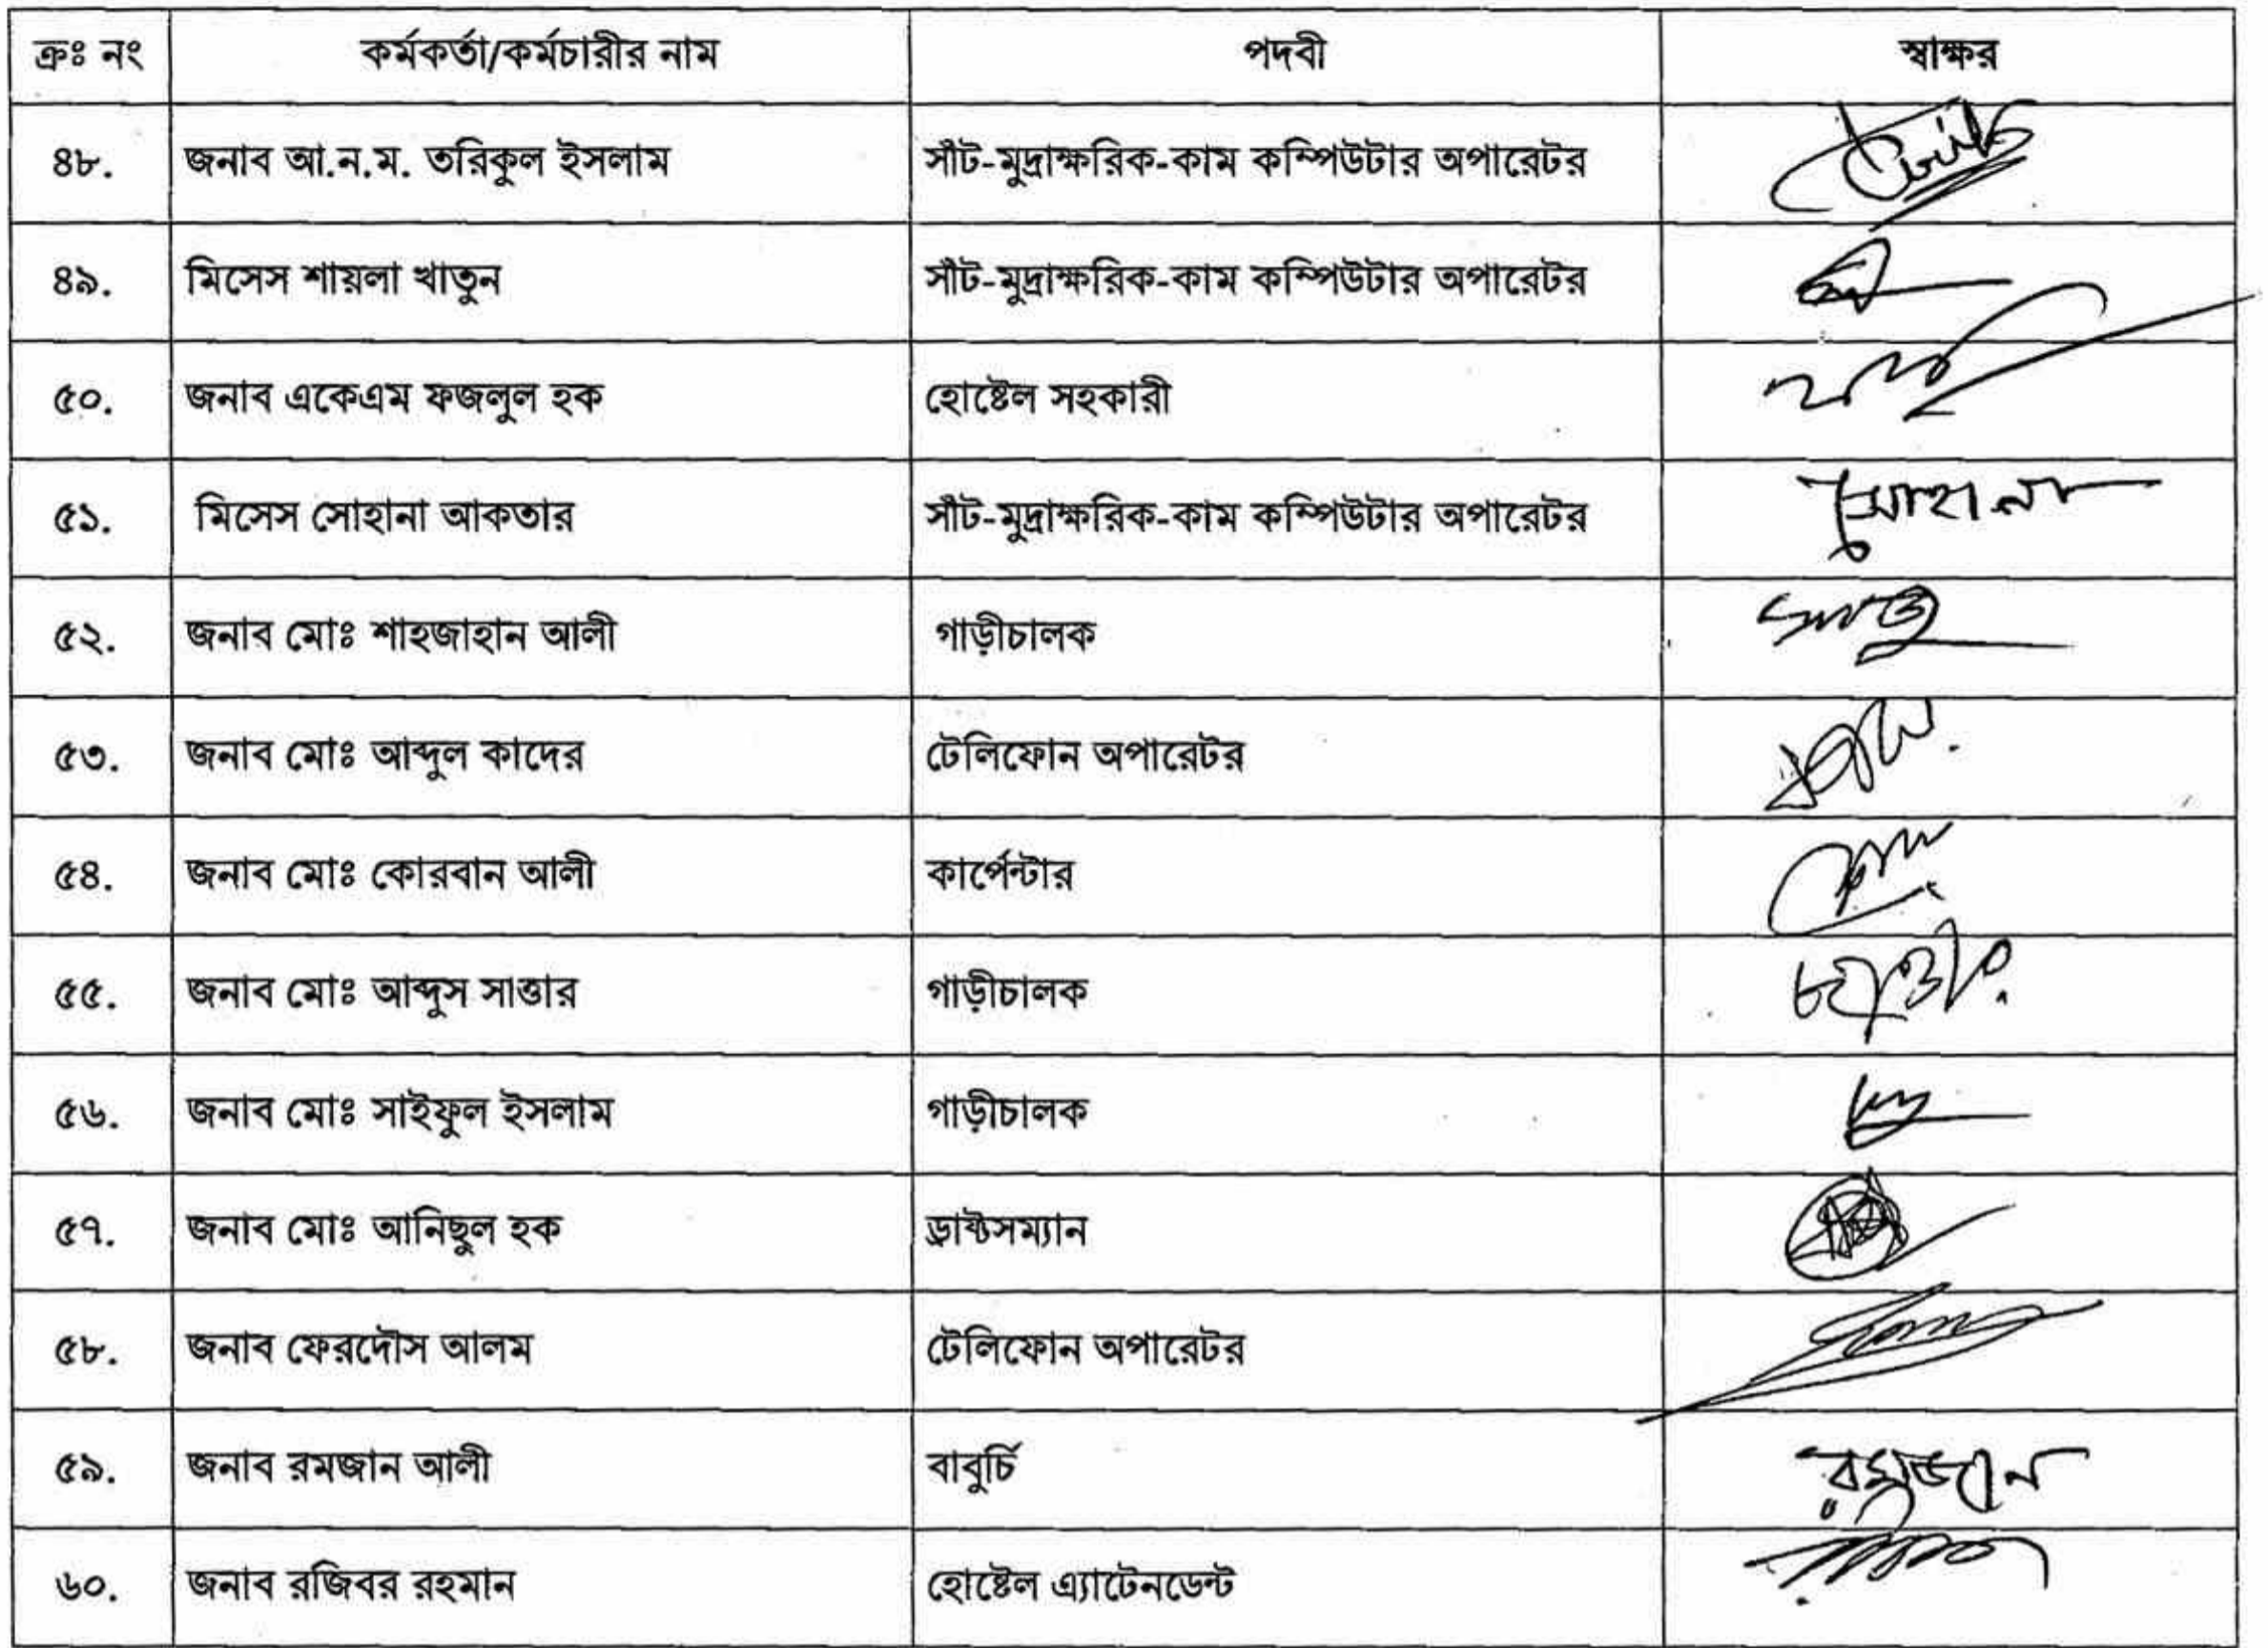 ক্রঃ নং কর্মকর্তা/কর্মচারীর নাম পদবী স্বাক্ষর
৪৮. জনাব আ.ন.ম. তরিকুল ইসলাম সাঁট-মুদ্রাক্ষরিক-কাম কম্পিউটার অপারেটর
৪৯. মিসেস শায়লা খাতুন সাঁট-মুদ্রাক্ষরিক-কাম কম্পিউটার অপারেটর
৫০. জনাব একেএম ফজলুল হক হোষ্টেল সহকারী
৫১. মিসেস সোহানা আকতার সাঁট-মুদ্রাক্ষরিক-কাম কম্পিউটার অপারেটর সোহানা
৫২. জনাব মোঃ শাহজাহান আলী গাড়ীচালক
৫৩. জনাব মোঃ আব্দুল কাদের টেলিফোন অপারেটর
৫৪. জনাব মোঃ কোরবান আলী কার্পেন্টার
৫৫. জনাব মোঃ আব্দুস সাত্তার গাড়ীচালক
৫৬. জনাব মোঃ সাইফুল ইসলাম গাড়ীচালক
৫৭. জনাব মোঃ আনিছুল হক ড্রাফ্টসম্যান
৫৮. জনাব ফেরদৌস আলম টেলিফোন অপারেটর
৫৯. জনাব রমজান আলী বাবুর্চি রমজান
৬০. জনাব রজিবর রহমান হোষ্টেল এ্যাটেনডেন্ট